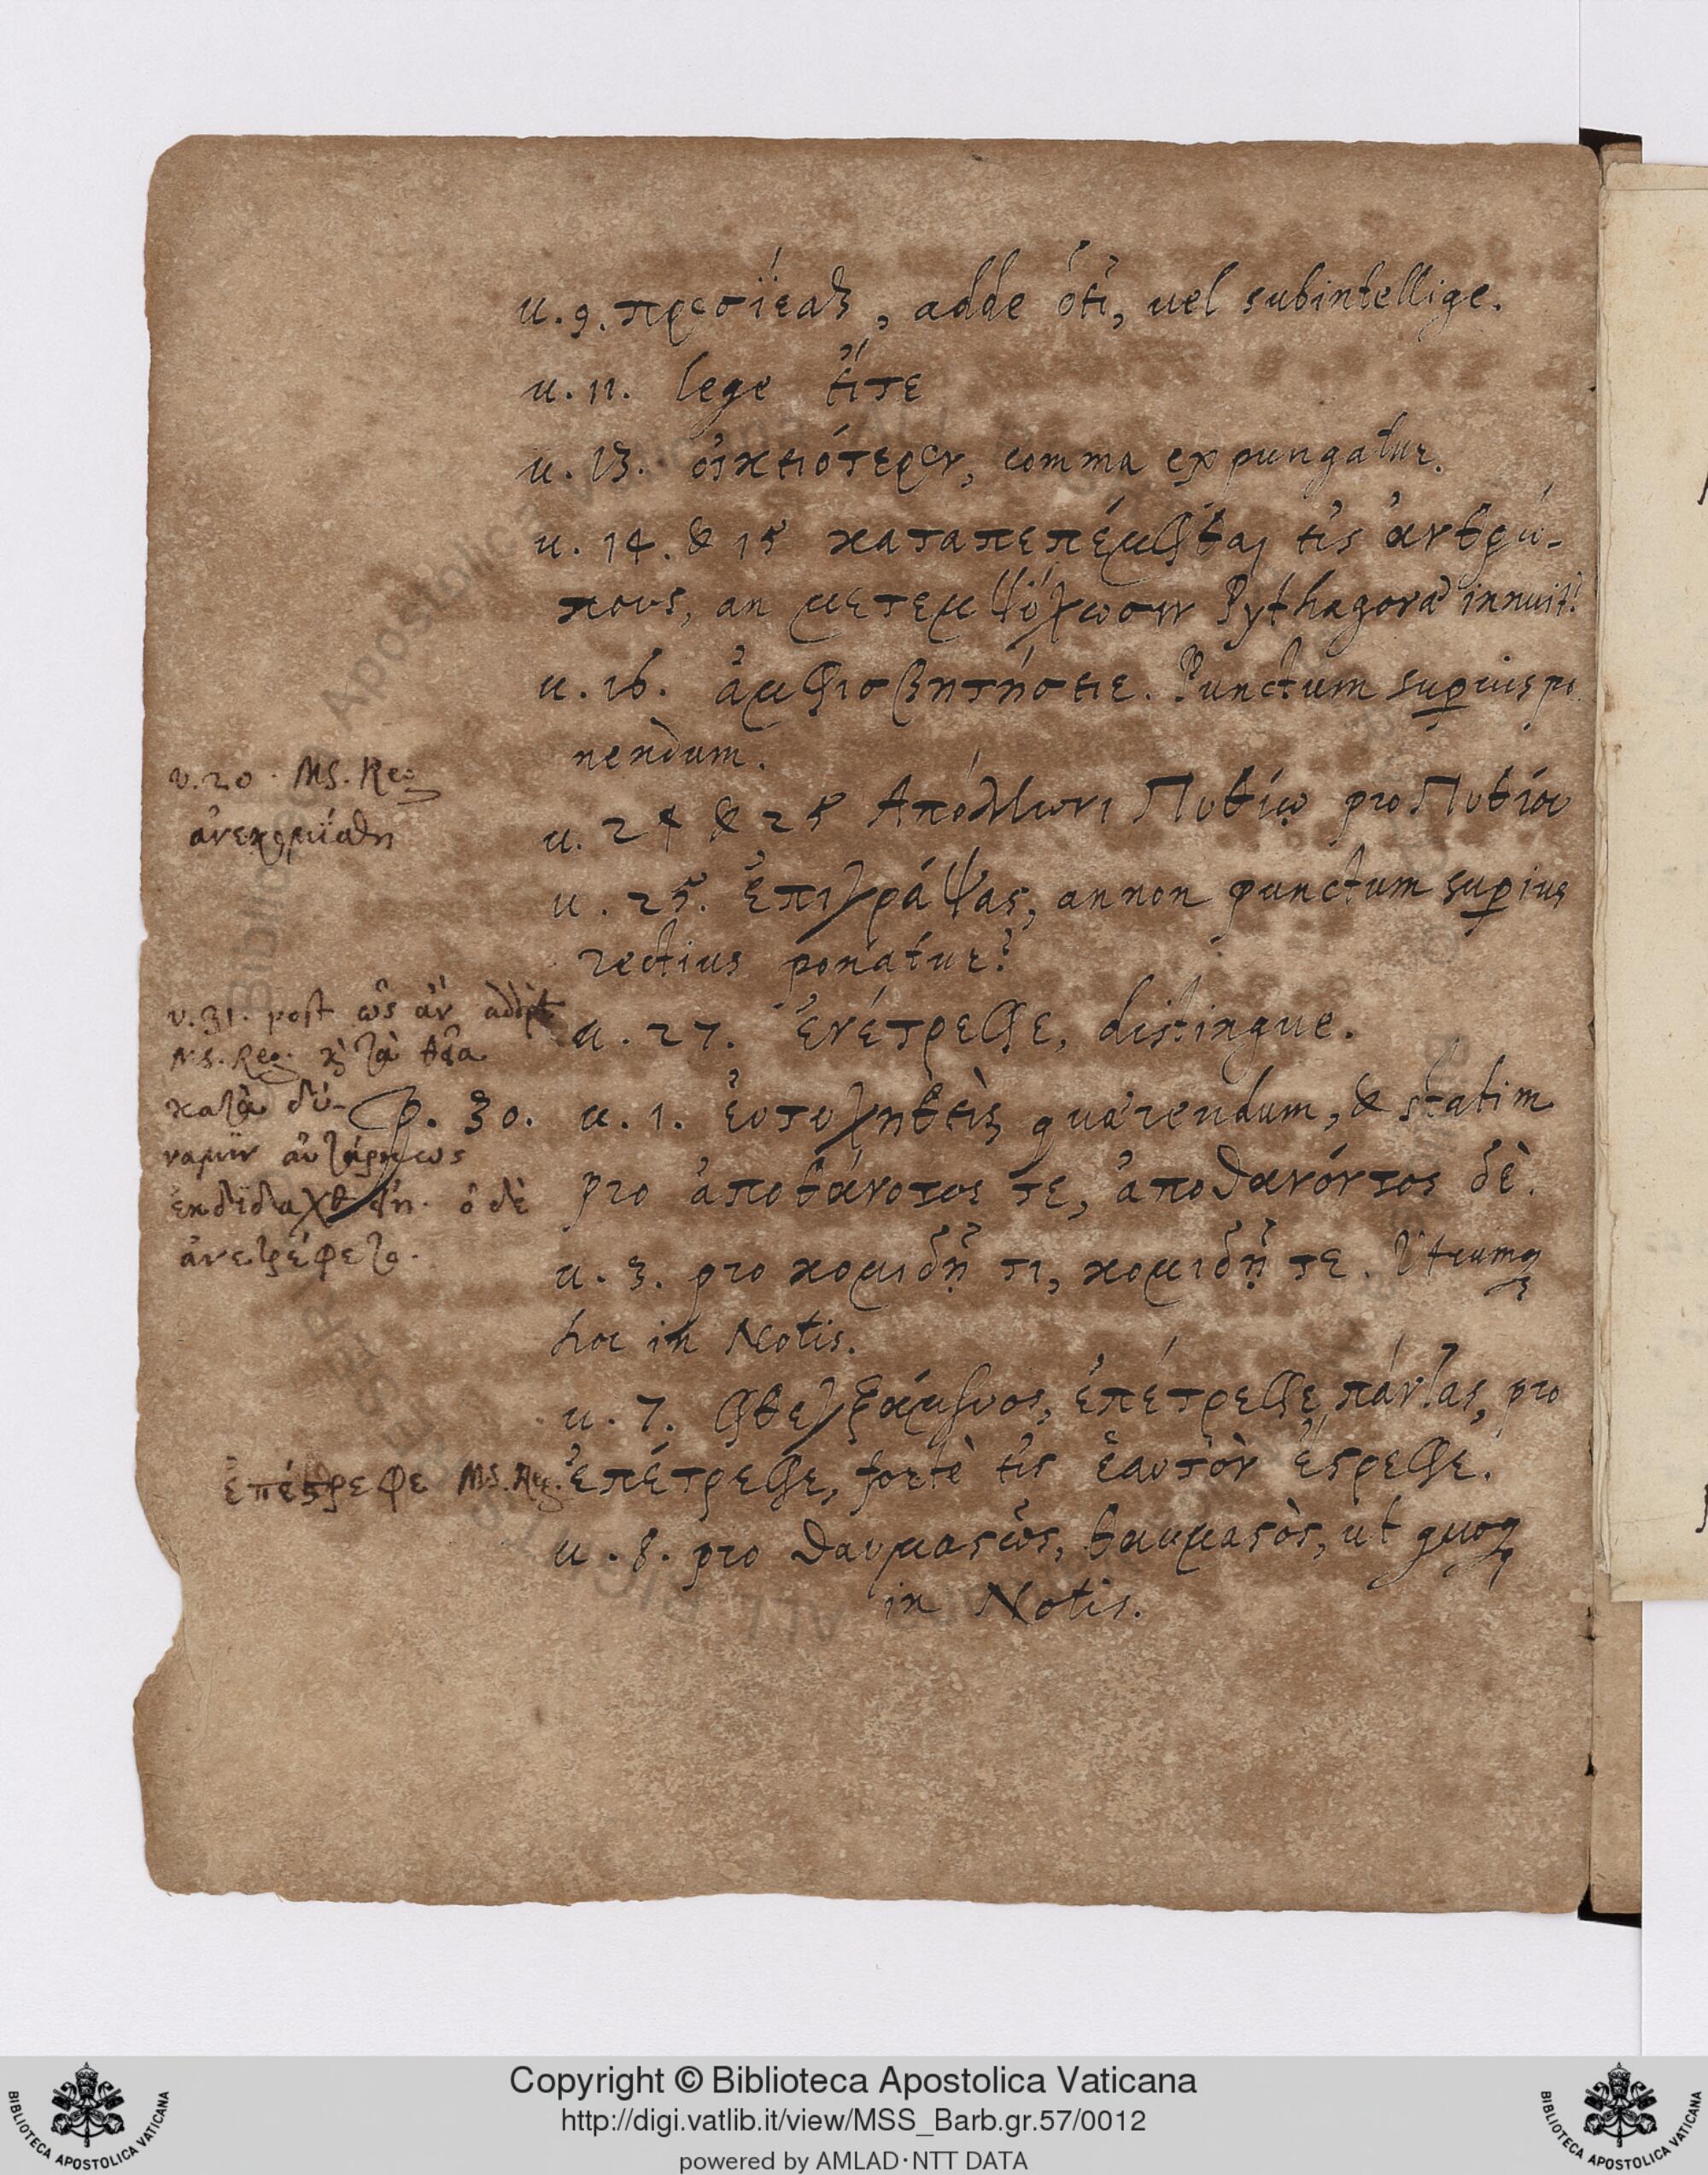 u. 9. προσίεσθαι, adde ὅτι, uel subintellige.
u. 11. lege εἴτε
u. 13. οἰκειότερον, comma expungatur.
u. 14. & 15 καταπεπέμφθαι εἰς ἀνθρώ-
πους, an μετεμψύχωσιν Pythagoræ innuit?
u. 16. ἀμφισβητήσειε. Punctum superius po
nendum.
u. 24 & 25 Απόλλωνι Πυθίῳ pro Πυθίου
u. 25. ἐπιγράψας, annon punctum superius
rectius ponatur?
u. 27. ἐνέτρεφε, distingue.
p. 30. u. 1. εὐτυχηθεὶς quærendum, & statim
pro ἀποθάνοτος τε, ἀποθανόντος δὲ.
u. 3. pro κομιδῇ τι, κομιδῇ τε. Utrumq
hoc in Notis.
u. 7. φθεγξάμενος, ἐπέτρεφε πάντας, pro
ἐπέτρεφε, fortè εἰς ἑαυτὸν ἔστρεφε.
u. 8. pro θαυμαστῶς, θαυμαστὸς, ut quoq
in Notis.
v. 20. MS. Reg
v. 31. post ὡς ἂν addit
MS. Reg. καὶ τὰ θεῖα
κατὰ δύ-
ναμιν αὐτάρκως
ἐκδιδαχθείη. ὁ δὲ
ἀνετρέφετο.
ἐπέστρεφε MS. Reg.
Copyright © Biblioteca Apostolica Vaticana
http://digi.vatlib.it/view/MSS_Barb.gr.57/0012
powered by AMLAD·NTT DATA
BIBLIOTECA APOSTOLICA VATICANA
BIBLIOTECA APOSTOLICA VATICANA